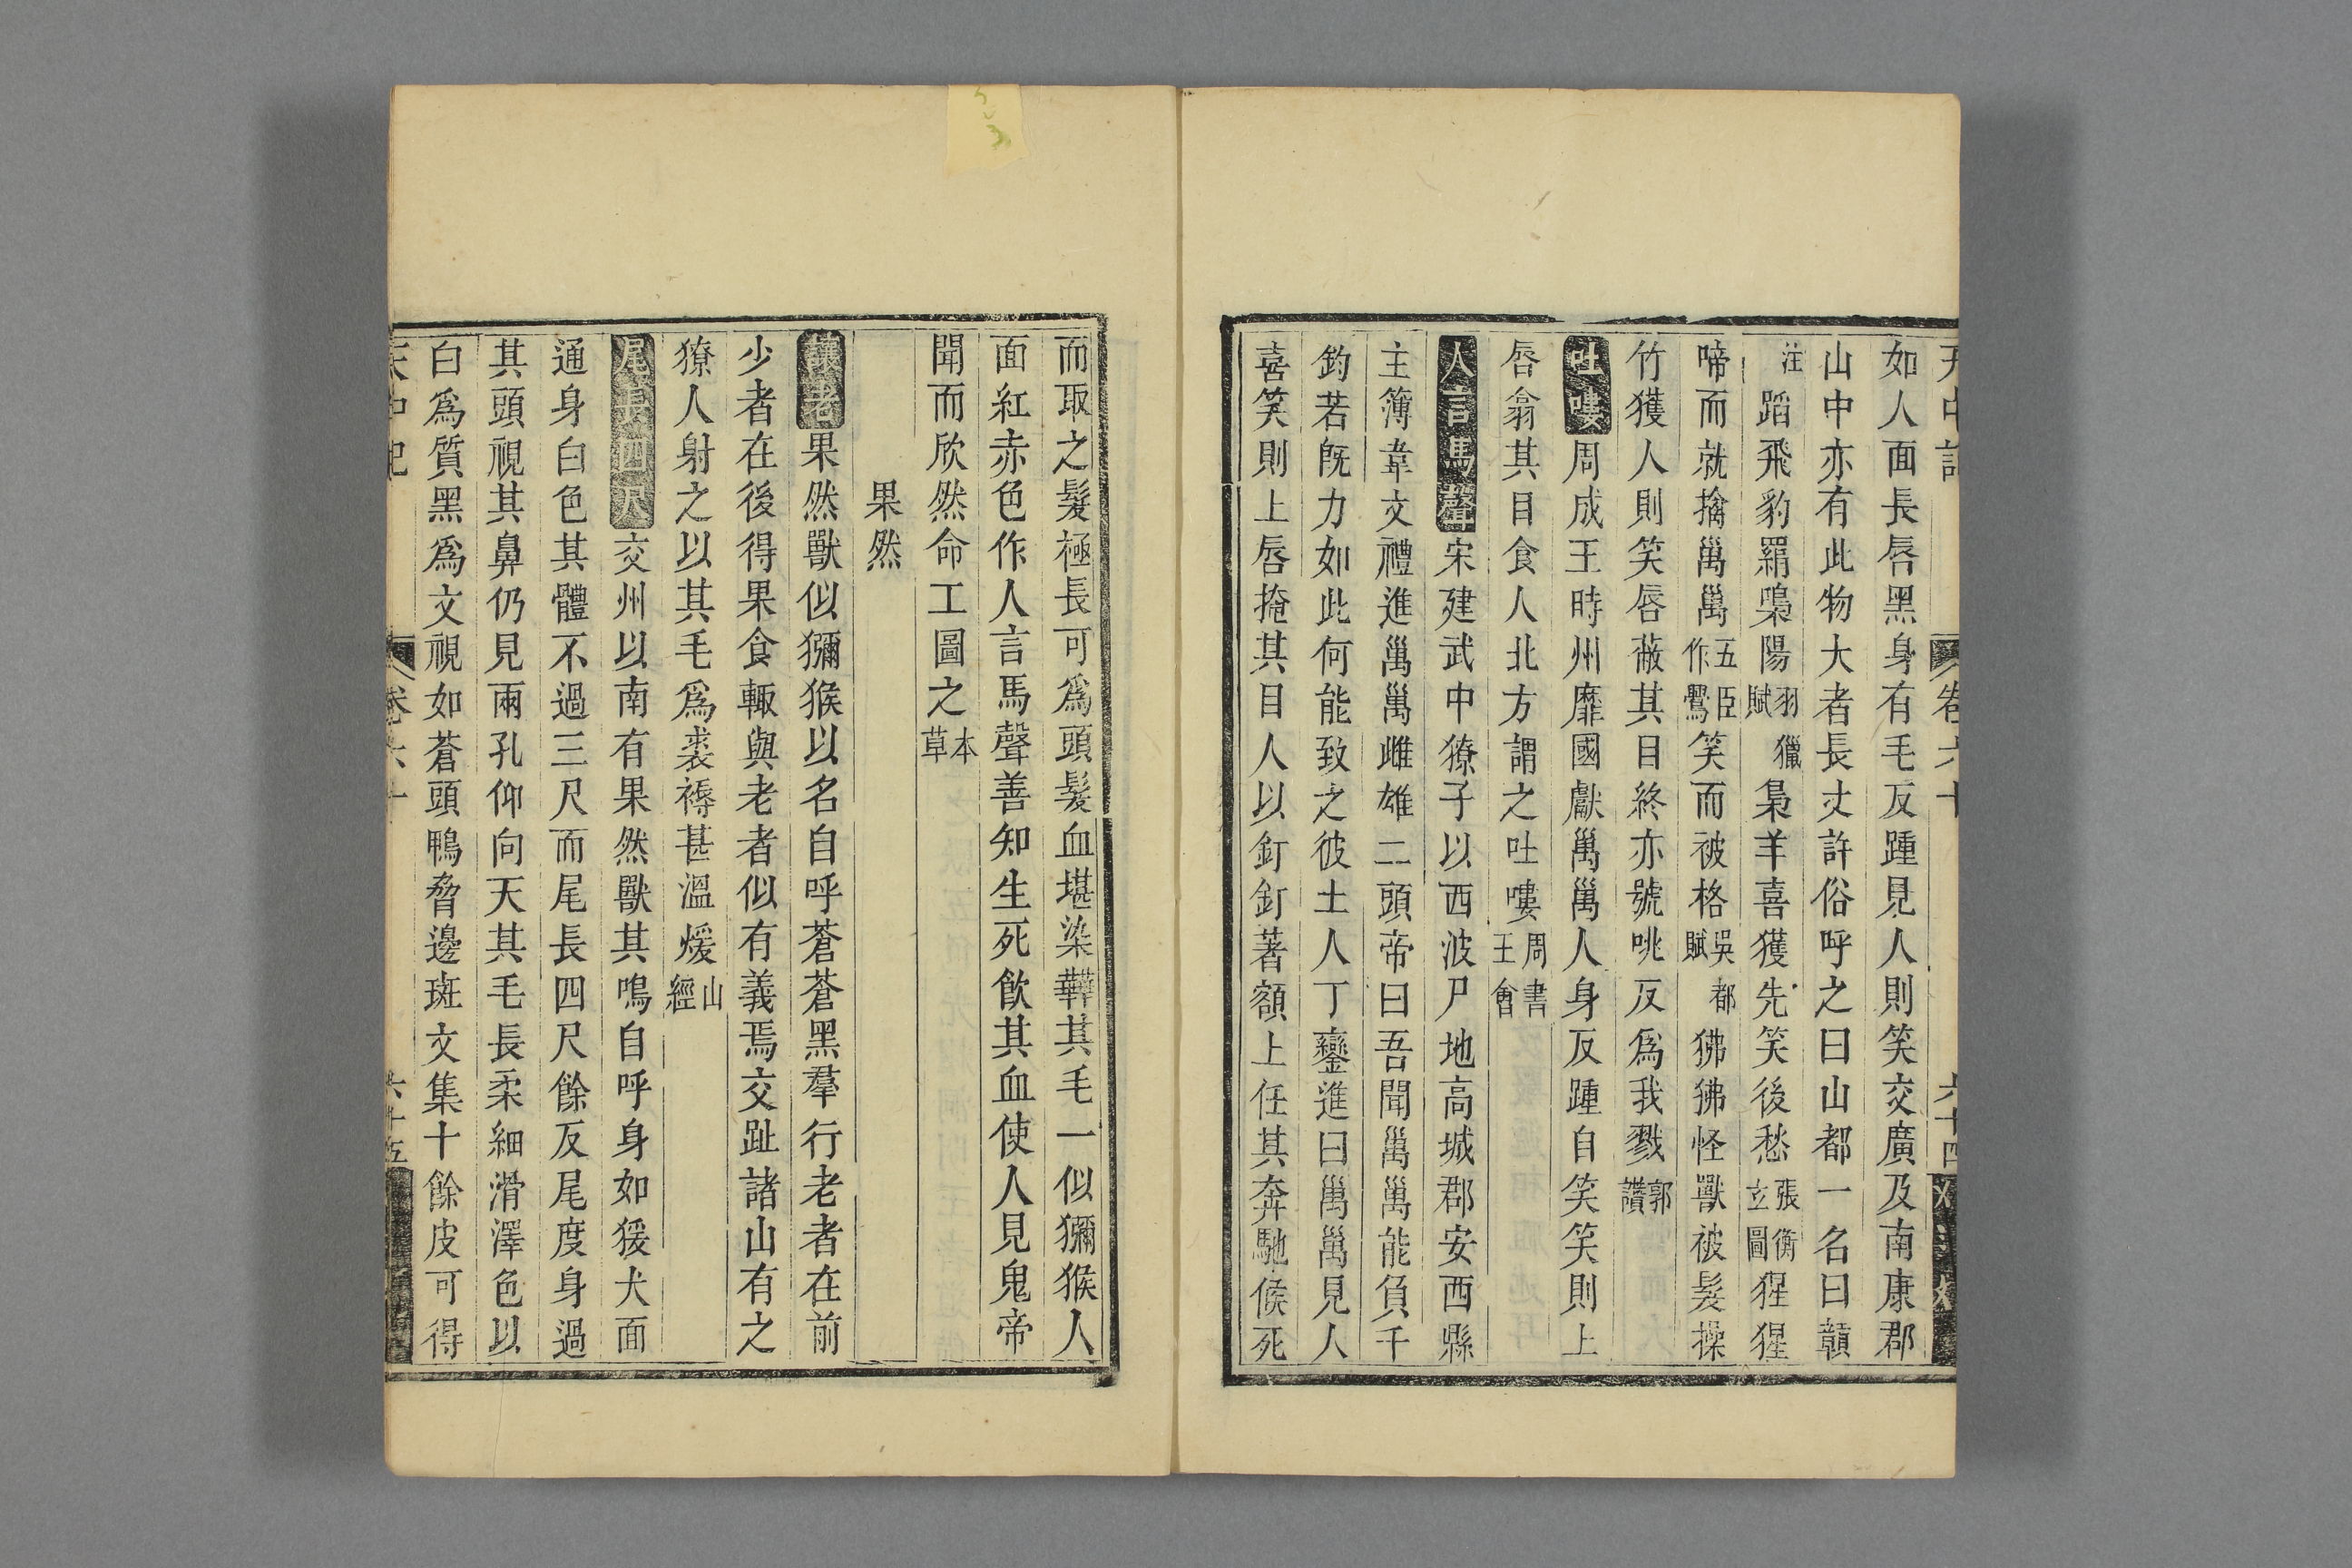 如人面長唇黑身有毛反踵見人則笑交廣及南康郡
山中亦有此物大者長丈許俗呼之曰山都一名曰贛
注蹈飛豹羂噪陽羽獵賦梟羊喜獲先笑後愁張衡玄圖猩猩
啼而就擒萬萬五臣作𥝋笑而被格吳都賦狒狒怪獸被髮操
竹獲人則笑唇蔽其目終亦號咷反爲我戮郭讚
吐嘍周成王時州靡國獻萬萬人身反踵自笑笑則上
唇翕其目食人北方謂之吐嘍周書王會
人言馬聲宋建武中獠子以西波尸地高城郡安西縣
主簿韋文禮進萬萬雌雄二頭帝曰吾聞萬萬能負千
鈞若旣力如此何能致之彼土人丁鑾進曰萬萬見人
喜笑則上唇掩其目人以釘釘著額上任其奔馳候死
而取之髮極長可爲頭髮血堪染鞾其毛一似獼猴人
面紅赤色作人言馬聲善知生死飲其血使人見鬼帝
聞而欣然命工圖之本草
果然
老果然獸似獼猴以名自呼蒼蒼黑羣行老者在前
少者在後得果食輒與老者似有義焉交趾諸山有之
獠人射之以其毛爲裘褥甚溫煖山經
尾長四尺交州以南有果然獸其鳴自呼身如猨犬面
通身白色其體不過三尺而尾長四尺餘反尾度身過
其頭視其鼻仍見兩孔仰向天其毛長柔細滑澤色以
白爲質黑爲文視如蒼頭鴨脅邊斑文集十餘皮可得